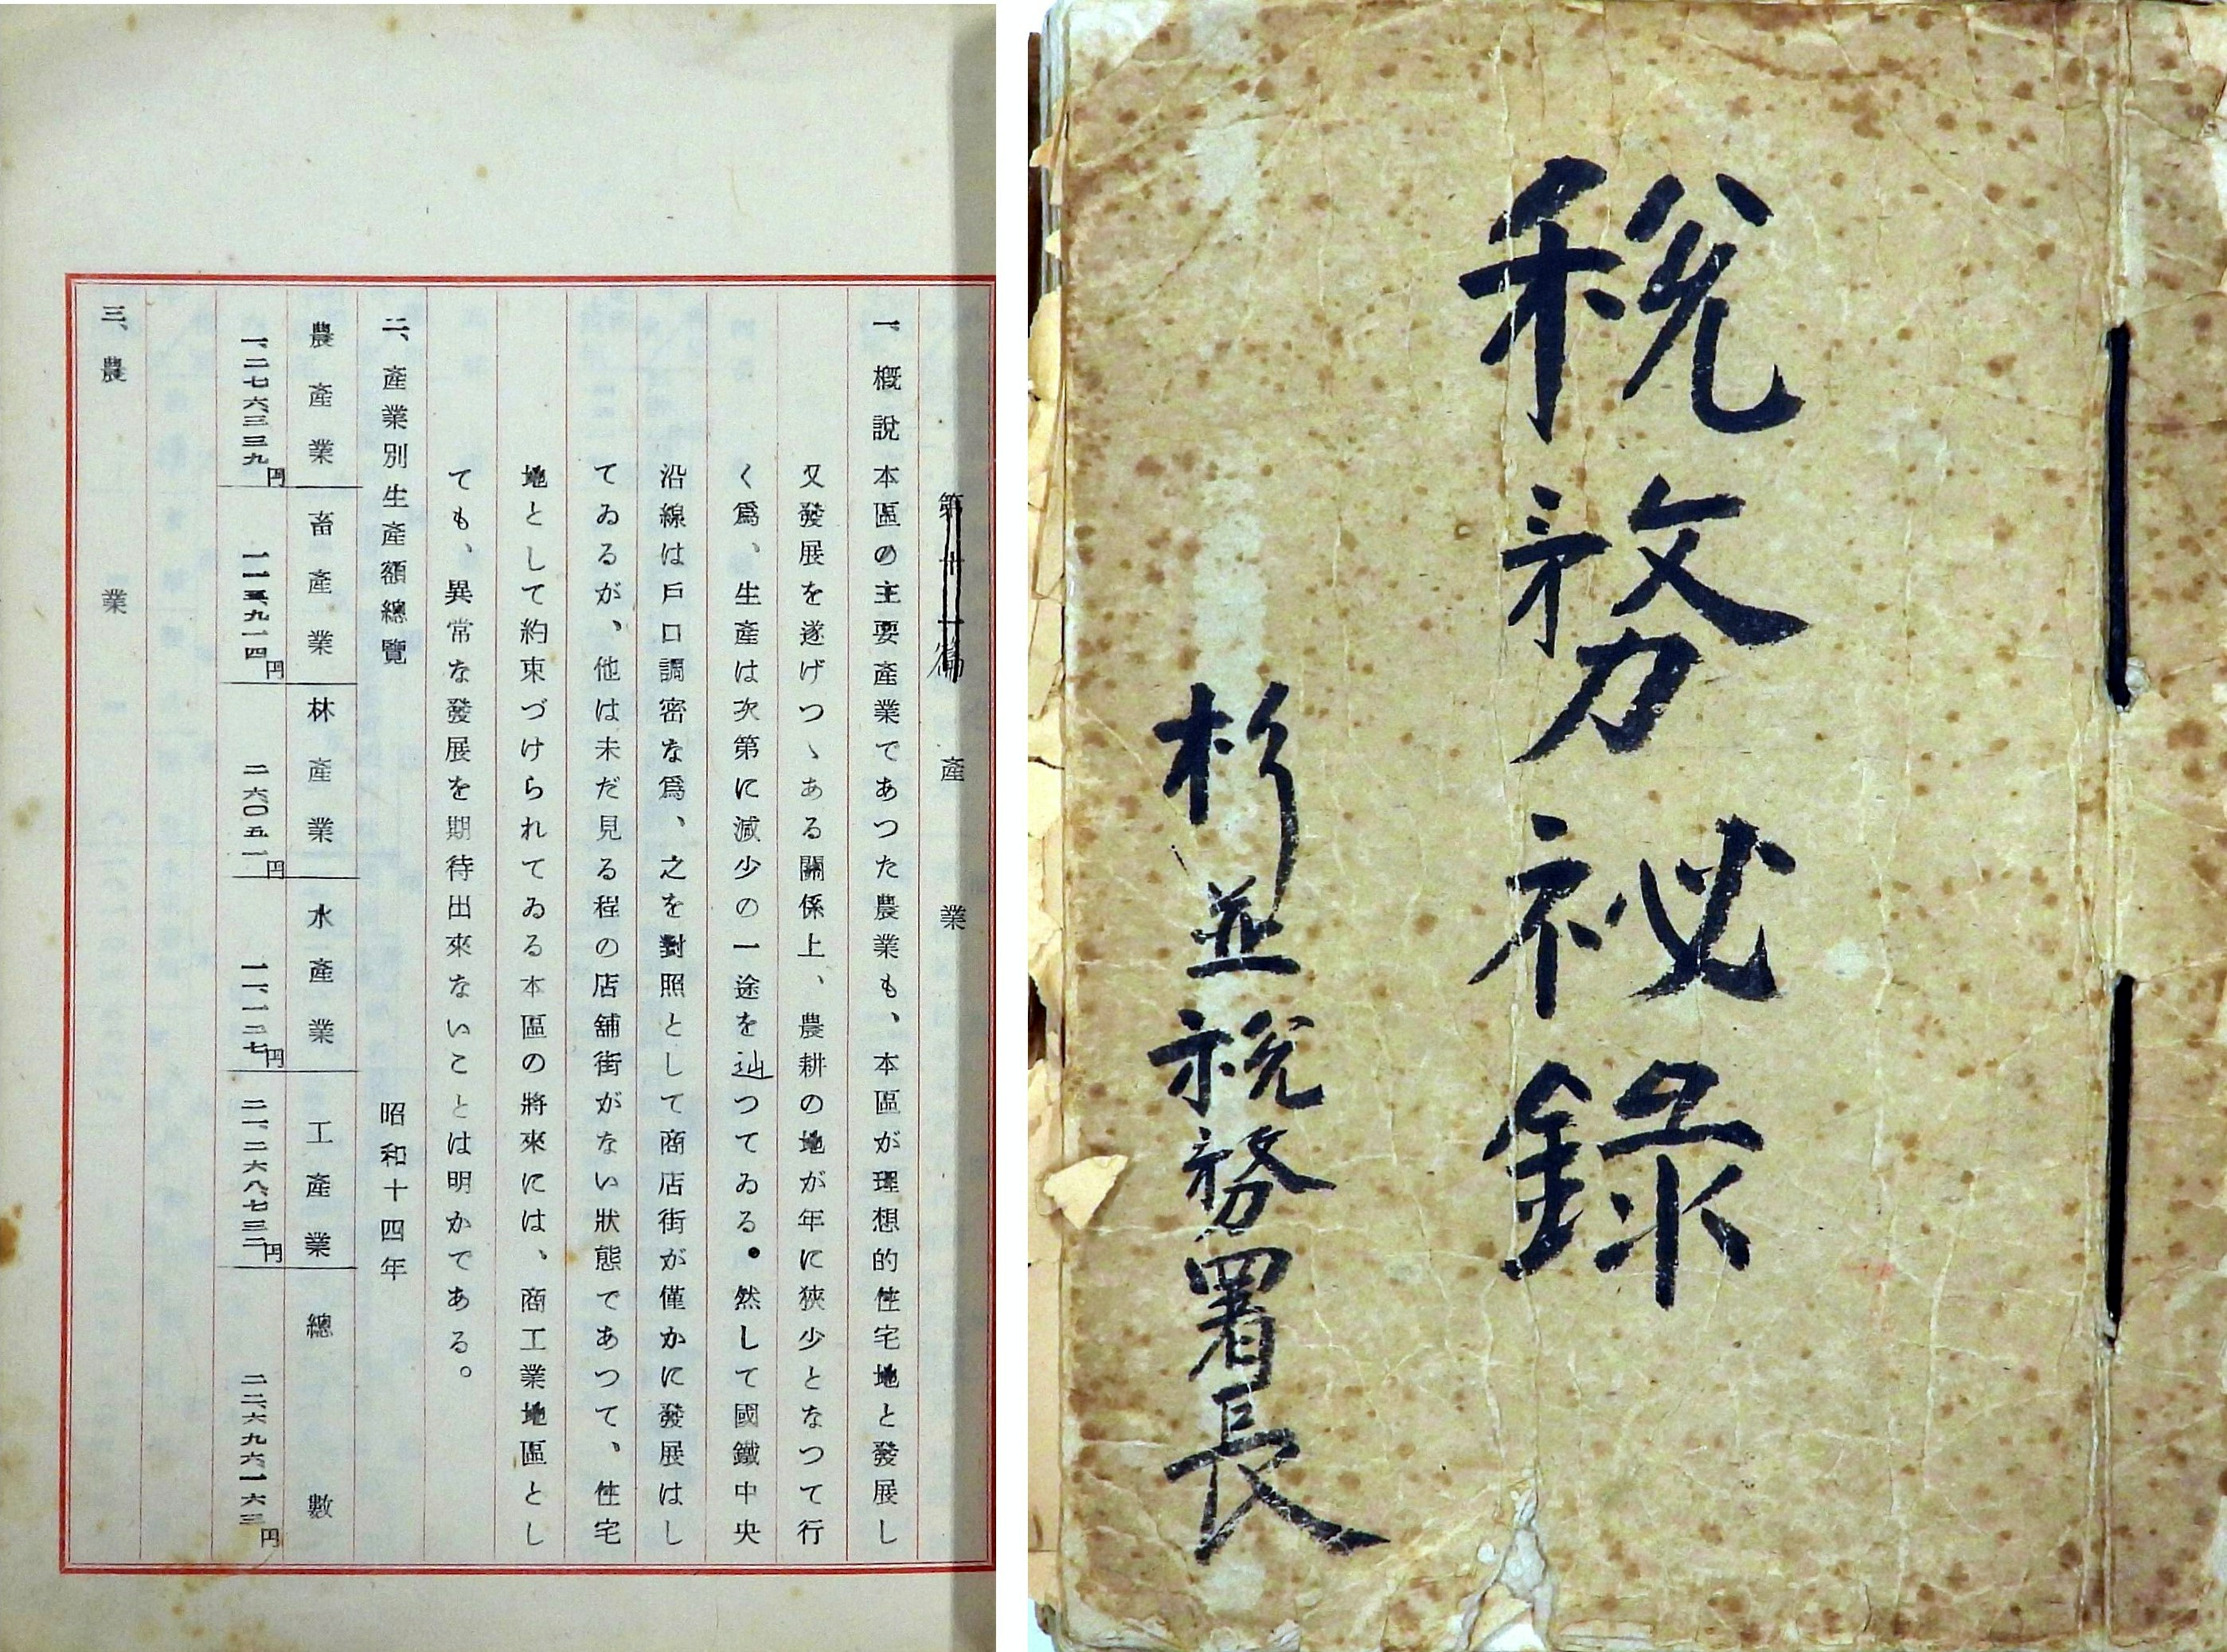 稅務祕録
杉並税務署長
第十一篇　產業
一、概說　本區の主要產業であつた農業も、本區が理想的住宅地と發展し
又發展を遂げつゝある關係上、農耕の地が年に狹少となつて行
く爲、生產は次第に減少の一途を辿つてゐる●然して國鐵中央
沿線は戶口調密な爲、之を對照として商店街が僅かに發展はし
てゐるが、他は未だ見る程の店舖街がない狀態であつて、住宅
地として約束づけられてゐる本區の將來には、商工業地區とし
ても、異常な發展を期待出來ないことは明かである。
二、產業別生產額總覽　昭和十四年
農產業　畜產業　林產業　水產業　工產業　總數
一、二七六三三九円　一一五、九一四円　二六〇五一円　一一、一二七円　二一、二六八、七三二円　二二、六九六一六三円
三、農業